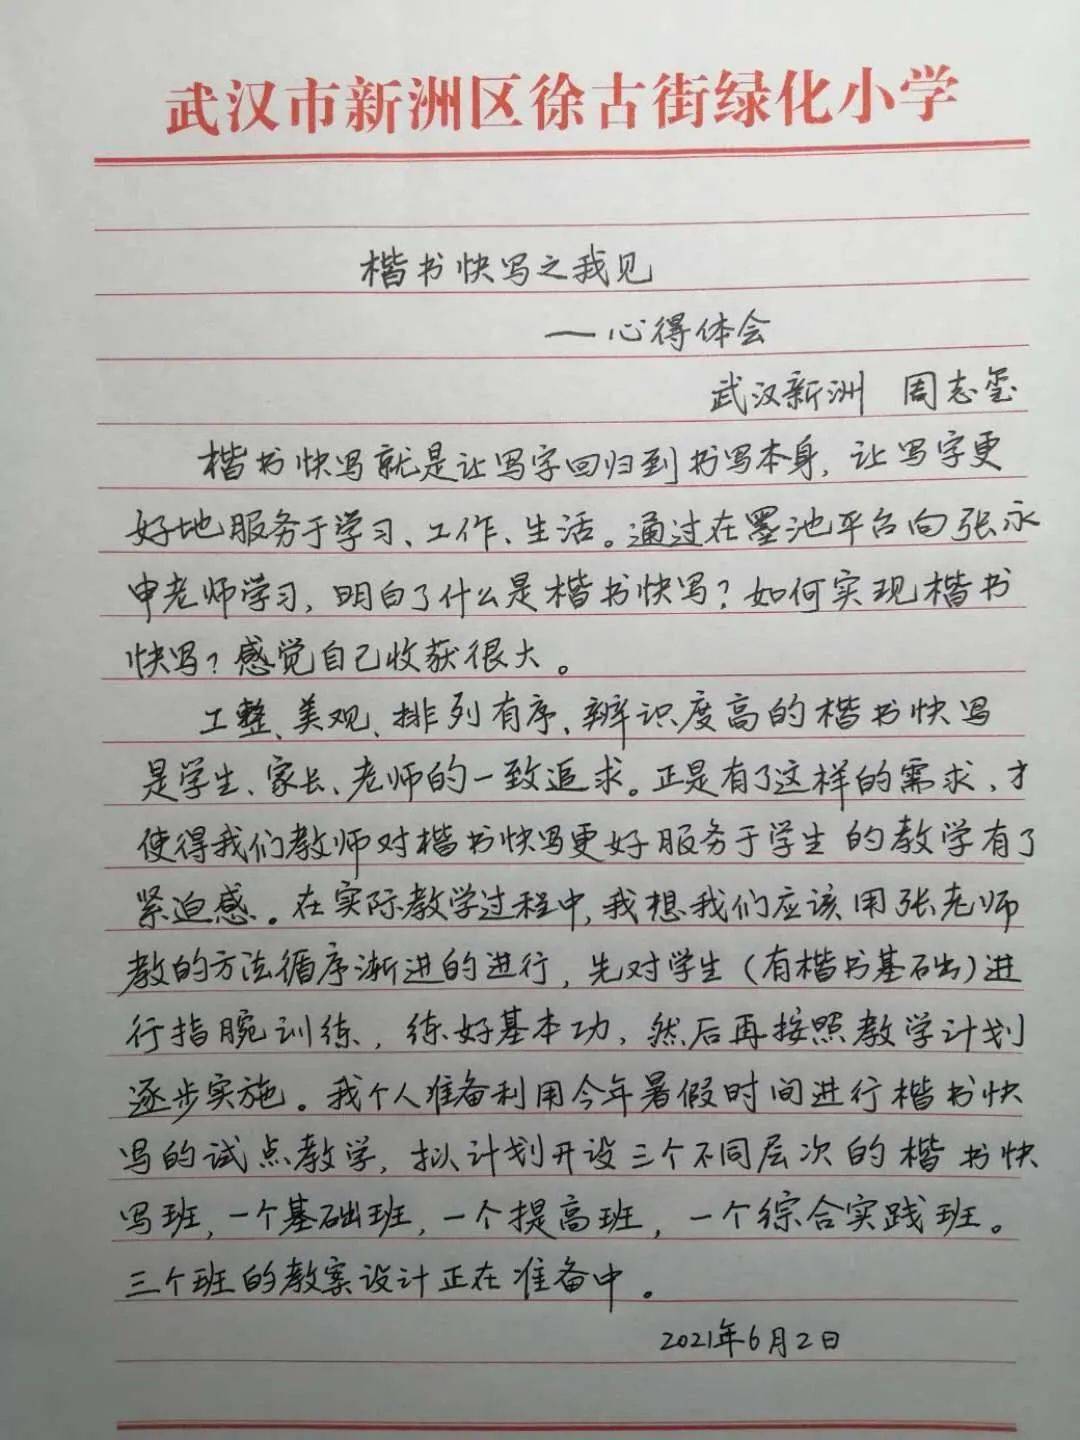 武汉市新洲区徐古街绿化小学
楷书快写之我见
—心得体会
武汉新洲 周志玺
楷书快写就是让写字回归到书写本身,让写字更
好地服务于学习、工作、生活。通过在墨池平台向张永
申老师学习,明白了什么是楷书快写?如何实现楷书
快写?感觉自己收获很大。
工整、美观、排列有序、辨识度高的楷书快写
是学生、家长、老师的一致追求。正是有了这样的需求、才
使得我们教师对楷书快写更好服务于学生的教学有了
紧迫感。在实际教学过程中,我想我们应该用张老师
教的方法循序渐进的进行,先对学生(有楷书基础)进
行指腕训练,练好基本功,然后再按照教学计划
逐步实施。我个人准备利用今年暑假时间进行楷书快
写的试点教学,拟计划开设三个不同层次的楷书快
写班,一个基础班,一个提高班,一个综合实践班。
三个班的教案设计正在准备中。
2021年6月2日